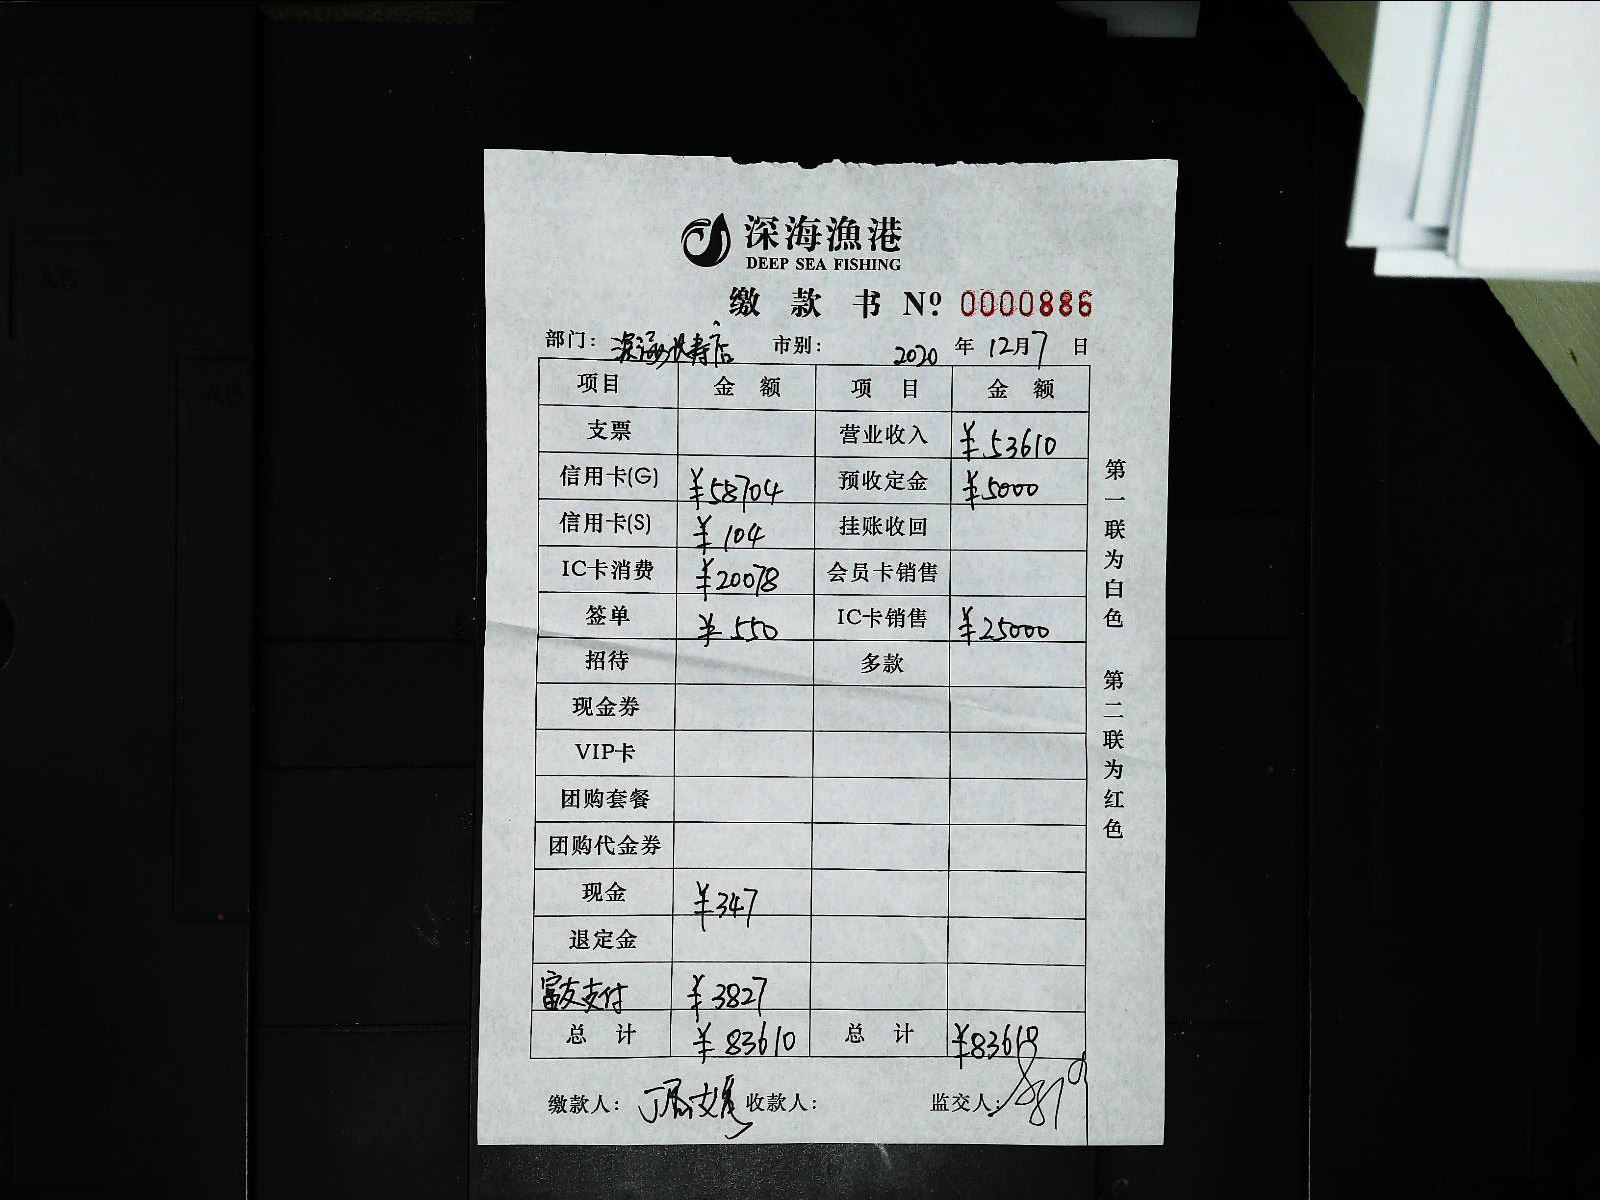 深海漁港
DEEP SEA FISHING
缴 款 书 Nº 0000886
部门: 深海长寿店 市别: 2020 年 12月7 日
项目 金 额 项 目 金 额
支票 营业收入 ¥53610
信用卡(G) ¥58704 预收定金 ¥5000
信用卡(S) ¥104 挂账收回
IC卡消费 ¥20078 会员卡销售
签单 ¥550 IC卡销售 ¥25000
招待 多款
现金券
VIP卡
团购套餐
团购代金券
现金 ¥347
退定金
富友支付 ¥3827
总 计 ¥83610 总 计 ¥83610
缴款人: 收款人: 监交人:
第一联为白色 第二联为红色
A4
A5